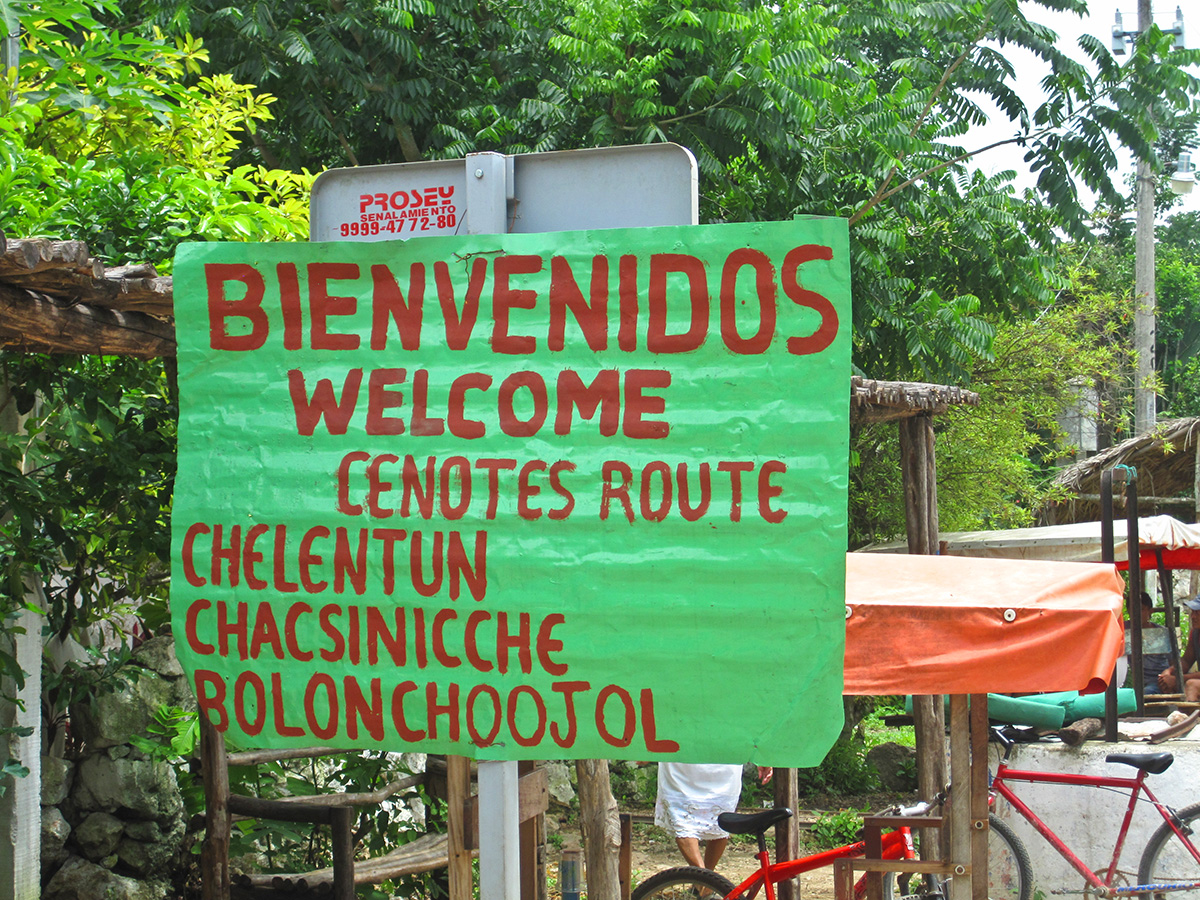 PROSEY
SEÑALAMIENTO
9999-47 72-80
BIENVENIDOS
WELCOME
CENOTES ROUTE
CHELENTUN
CHACSINICCHE
BOLONCHOOJOL